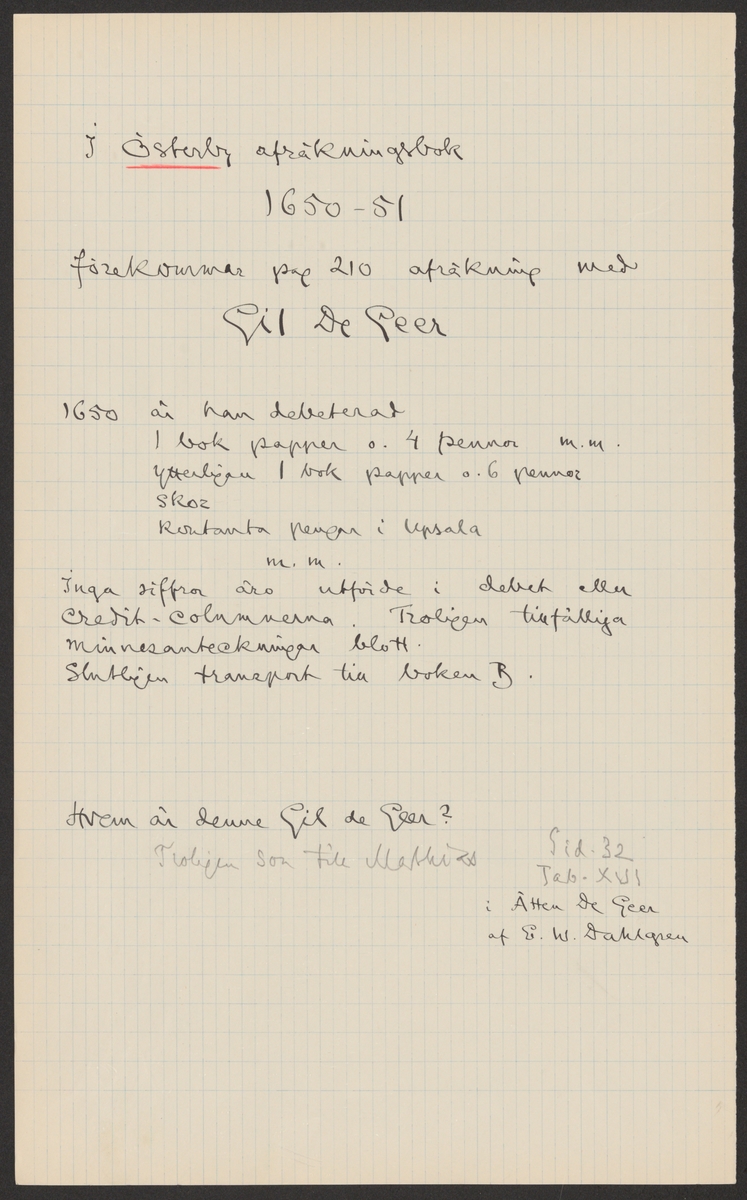 I Österby afräkningsbok
1650-51
förekommar pag 210 afräkning med
Gil De Geer
1650 är han debeterad
1 bok papper o. 4 pennor m.m.
ytterligen 1 bok papper o. 6 pennor
skor
kontanta pengar i Upsala
m. m.
Inga siffror äro utförde i debet eller
credit-columnerna. Troligen tillfälliga
minnesanteckningar blott.
Slutligen transport till boken B.
Hvem är denne Gil de Geer?
Troligen son till Matthias
Sid. 32
Tab. XVII
i Ätten De Geer
af E. W. Dahlgren